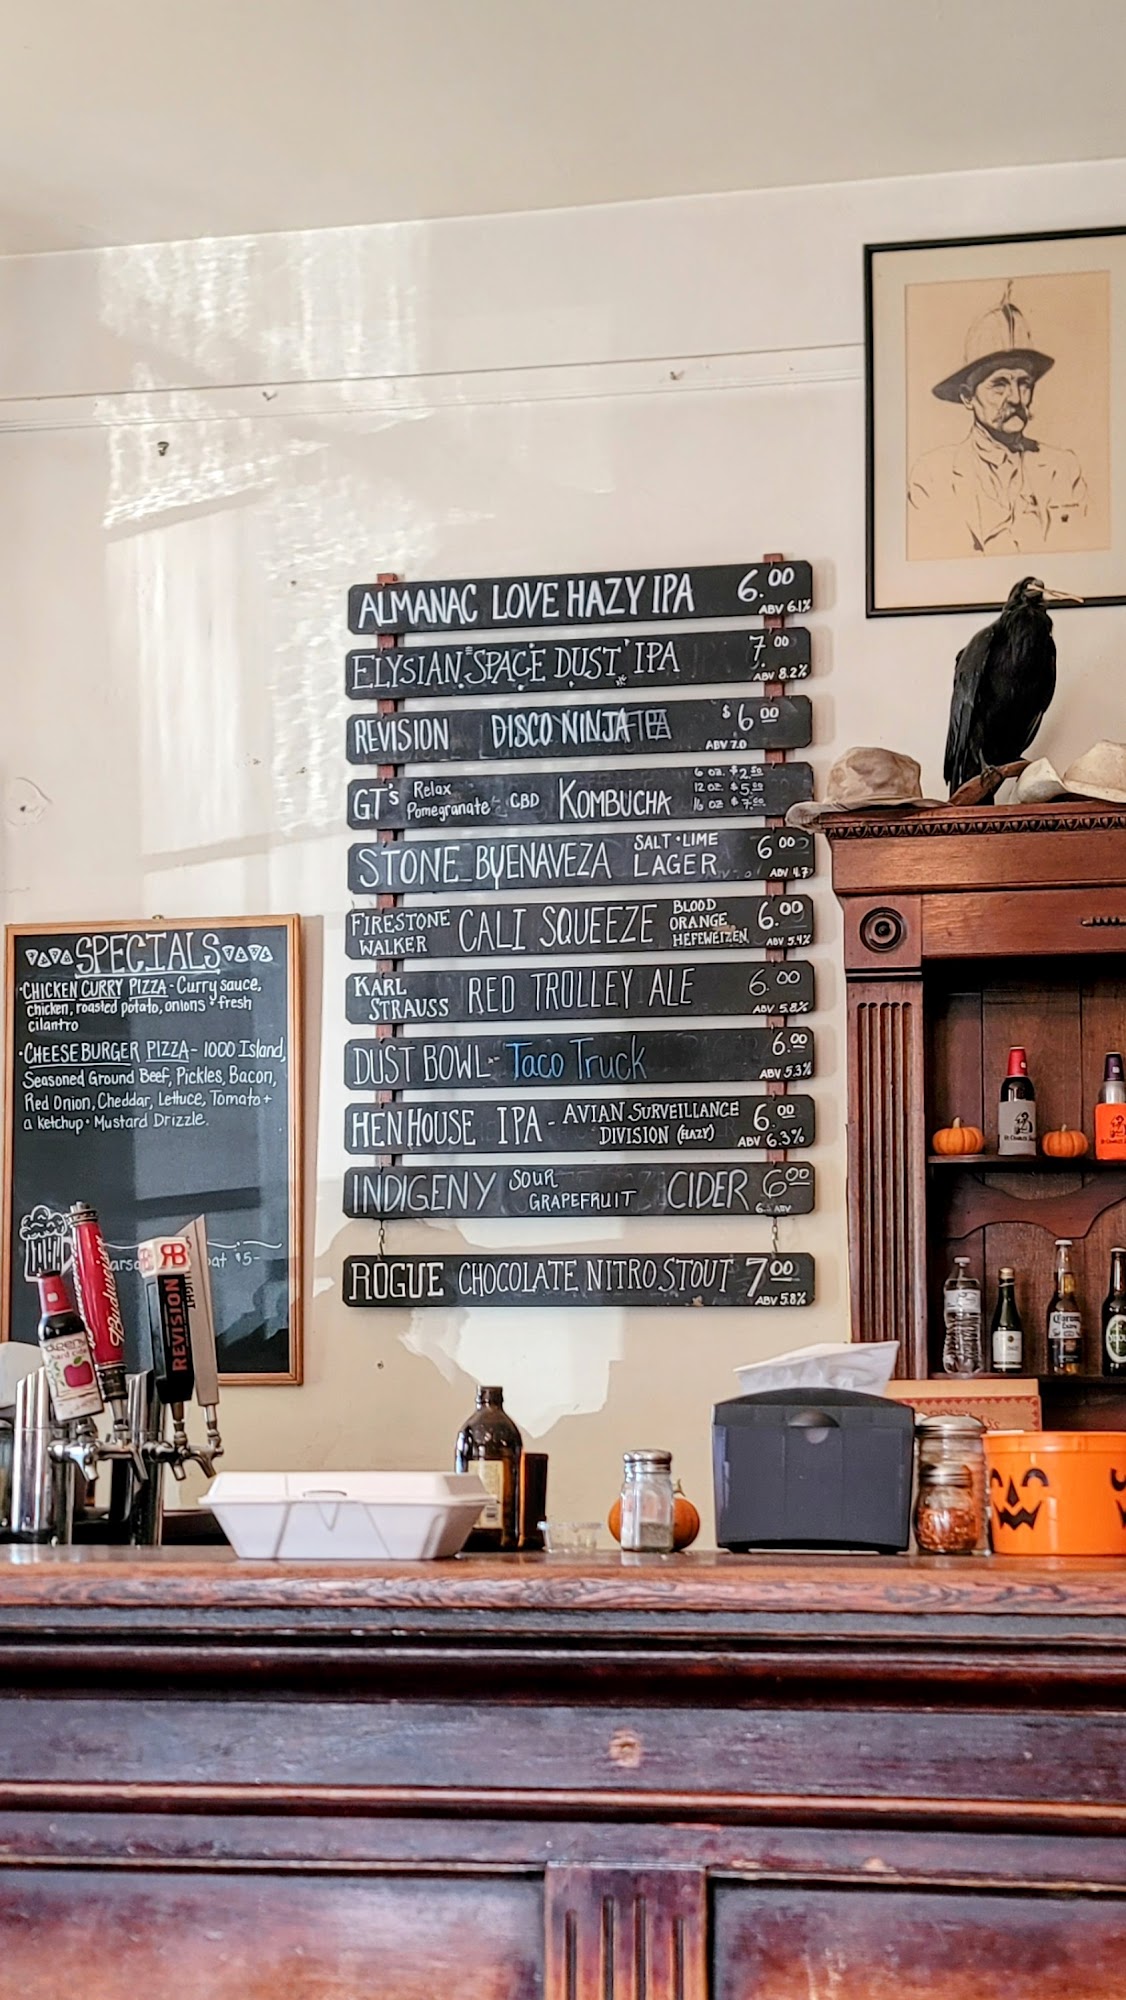 ALMANAC LOVE HAZY IPA 6.00
ABV 6.1%
ELYSIAN "SPACE DUST" IPA 7.00
ABV 8.2%
REVISION DISCO NINJA IPA $6.00
ABV 7.0
GT's Relax Pomegranate CBD KOMBUCHA
6 oz. $2.50
12 oz $5.00
16 oz $7.00
STONE BUENAVEZA SALT·LIME LAGER 6.00
ABV 4.7
FIRESTONE WALKER CALI SQUEEZE BLOOD ORANGE HEFEWEIZEN 6.00
ABV 5.4%
KARL STRAUSS RED TROLLEY ALE 6.00
ABV 5.8%
DUST BOWL - Taco Truck 6.00
ABV 5.3%
HENHOUSE IPA - AVIAN SURVEILLANCE DIVISION (HAZY) 6.00
ABV 6.3%
INDIGENY SOUR GRAPEFRUIT CIDER 6.00
ABV
ROGUE CHOCOLATE NITRO STOUT 7.00
ABV 5.8%
SPECIALS
·CHICKEN CURRY PIZZA - Curry sauce,
chicken, roasted potato, onions + fresh
cilantro
·CHEESEBURGER PIZZA - 1000 Island,
Seasoned Ground Beef, Pickles, Bacon,
Red Onion, Cheddar, Lettuce, Tomato +
a ketchup · Mustard Drizzle.
$5-
Budweiser
RB
REVISION
Corona